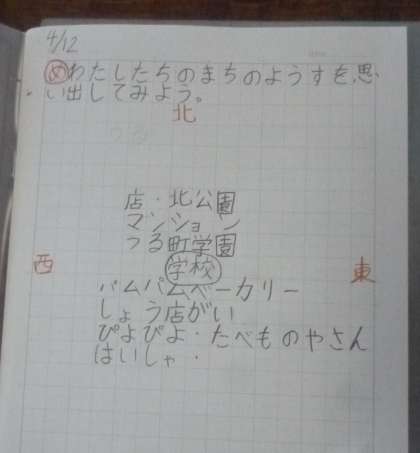 4/12
めわたしたちのまちのようすを思
い出してみよう。
北
店・北公園
マンション
つる町学園
西 学校 東
パムパムベーカリー
しょう店がい
ぴよぴよ・たべものやさん
はいしゃ・